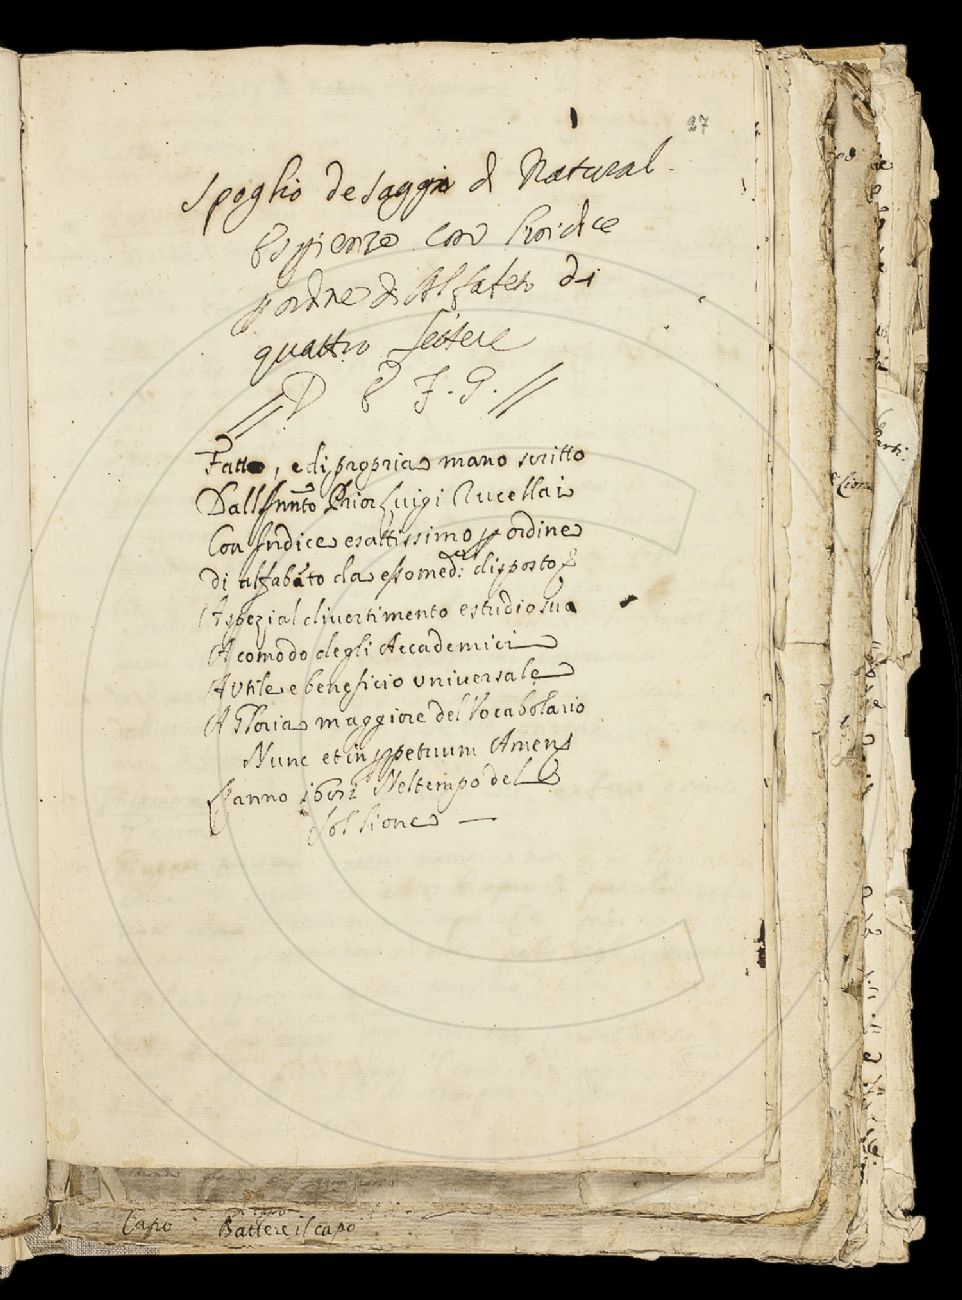 27
Spoglio de Saggi di Natural
Esperienze con l'indice
per ordine di Alfabeto di
quattro lettere
// D E F. G. //
Fatto, e di propria mano scritto
Dall' Innto Prior Luigi Rucellai
Con Indice esattissimo p ordine
di alfabeto da esso med: disposto
spezial divertimento e studio sua
A comodo degli Accademici
A Utile e beneficio universale
A Gloria maggiore del Vocabolario
Nunc et in ppetuum Amen
L'anno Nel tempo del
sol lione —
Capo Battere il capo